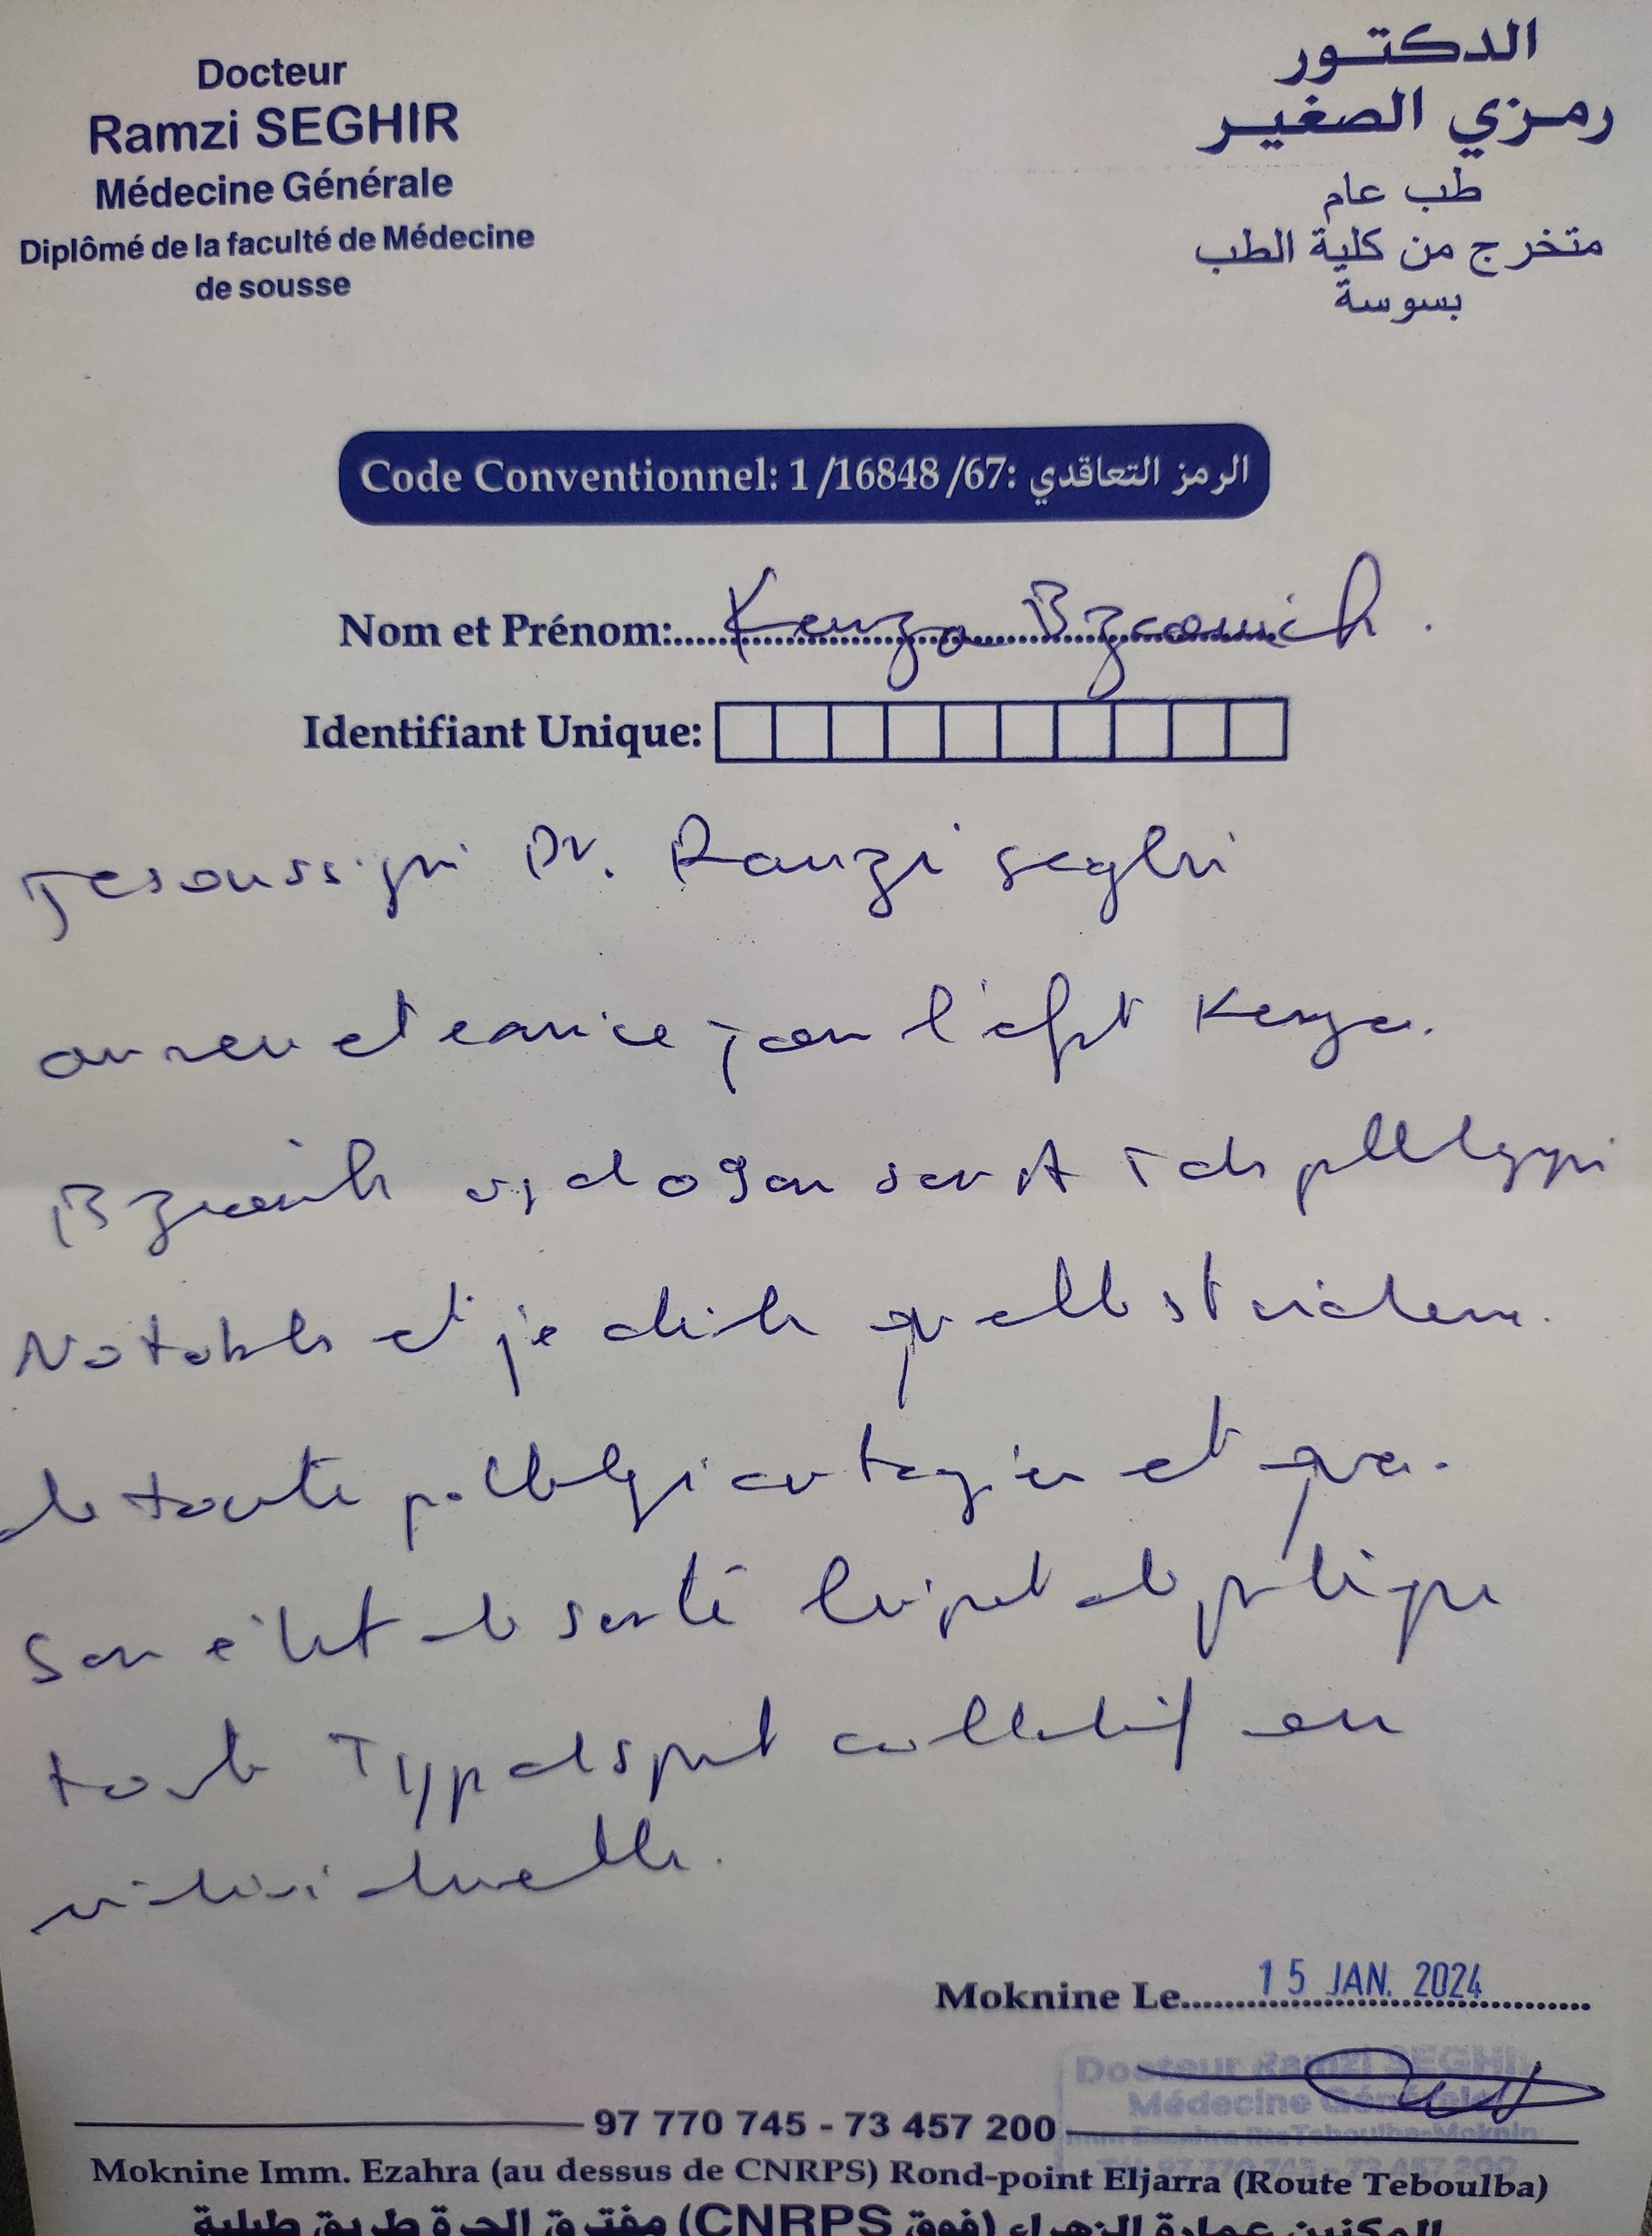 Docteur
Ramzi SEGHIR
Médecine Générale
Diplômé de la faculté de Médecine
de sousse
الدكتور
رمزي الصغير
طب عام
متخرج من كلية الطب
بسوسة
Code Conventionnel: 1/16848/67: الرمز التعاقدي
Nom et Prénom: Kenza Bzeouich.
Identifiant Unique:
Je soussigné Dr. Ramzi Seghir
avoir vu et examiné ce jour l'enfant Kenza
Bzeouich
Notable et je déclare qu'elle est indemne
de toute pathologie contagieuse et que
son état de santé lui permet de pratiquer
tout type de sport collectif ou
individuelle.
Moknine Le 15 JAN. 2024
Docteur Ramzi SEGHIR
Médecine Générale
97 770 745 - 73 457 200
Moknine Imm. Ezahra (au dessus de CNRPS) Rond-point Eljarra (Route Teboulba)
المكنين عمارة الزهراء (فوق CNRPS) مفترق الجرة طريق طبلبة